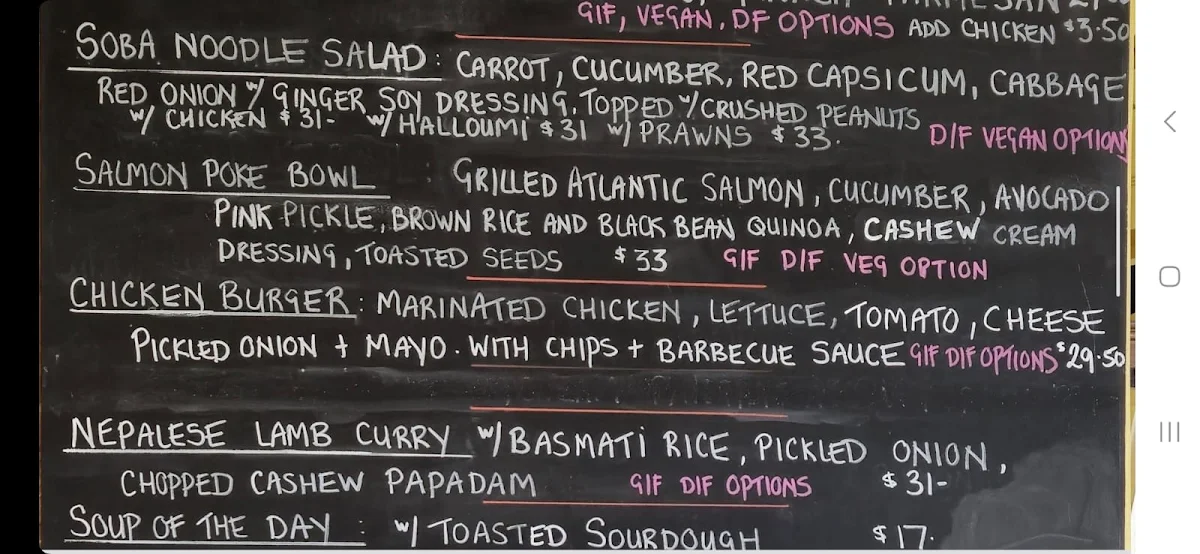 GIF, VEGAN, DF OPTIONS ADD CHICKEN $3.50
SOBA NOODLE SALAD: CARROT, CUCUMBER, RED CAPSICUM, CABBAGE
RED ONION W/ GINGER SOY DRESSING, TOPPED W/ CRUSHED PEANUTS
W/ CHICKEN $31- W/ HALLOUMI $31 W/ PRAWNS $33.
D/F VEGAN OPTIONS
SALMON POKE BOWL GRILLED ATLANTIC SALMON, CUCUMBER, AVOCADO
PINK PICKLE, BROWN RICE AND BLACK BEAN QUINOA, CASHEW CREAM
DRESSING, TOASTED SEEDS $33 GIF DIF VEG OPTION
CHICKEN BURGER: MARINATED CHICKEN, LETTUCE, TOMATO, CHEESE
PICKLED ONION + MAYO. WITH CHIPS + BARBECUE SAUCE GIF DIF OPTIONS $29.50
NEPALESE LAMB CURRY W/ BASMATI RICE, PICKLED ONION,
CHOPPED CASHEW PAPADAM GIF DIF OPTIONS $31-
SOUP OF THE DAY: W/ TOASTED SOURDOUGH $17.